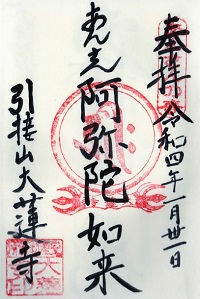 奉拝 令和四年一月卅一日
阿弥陀如来
引接山大蓮寺